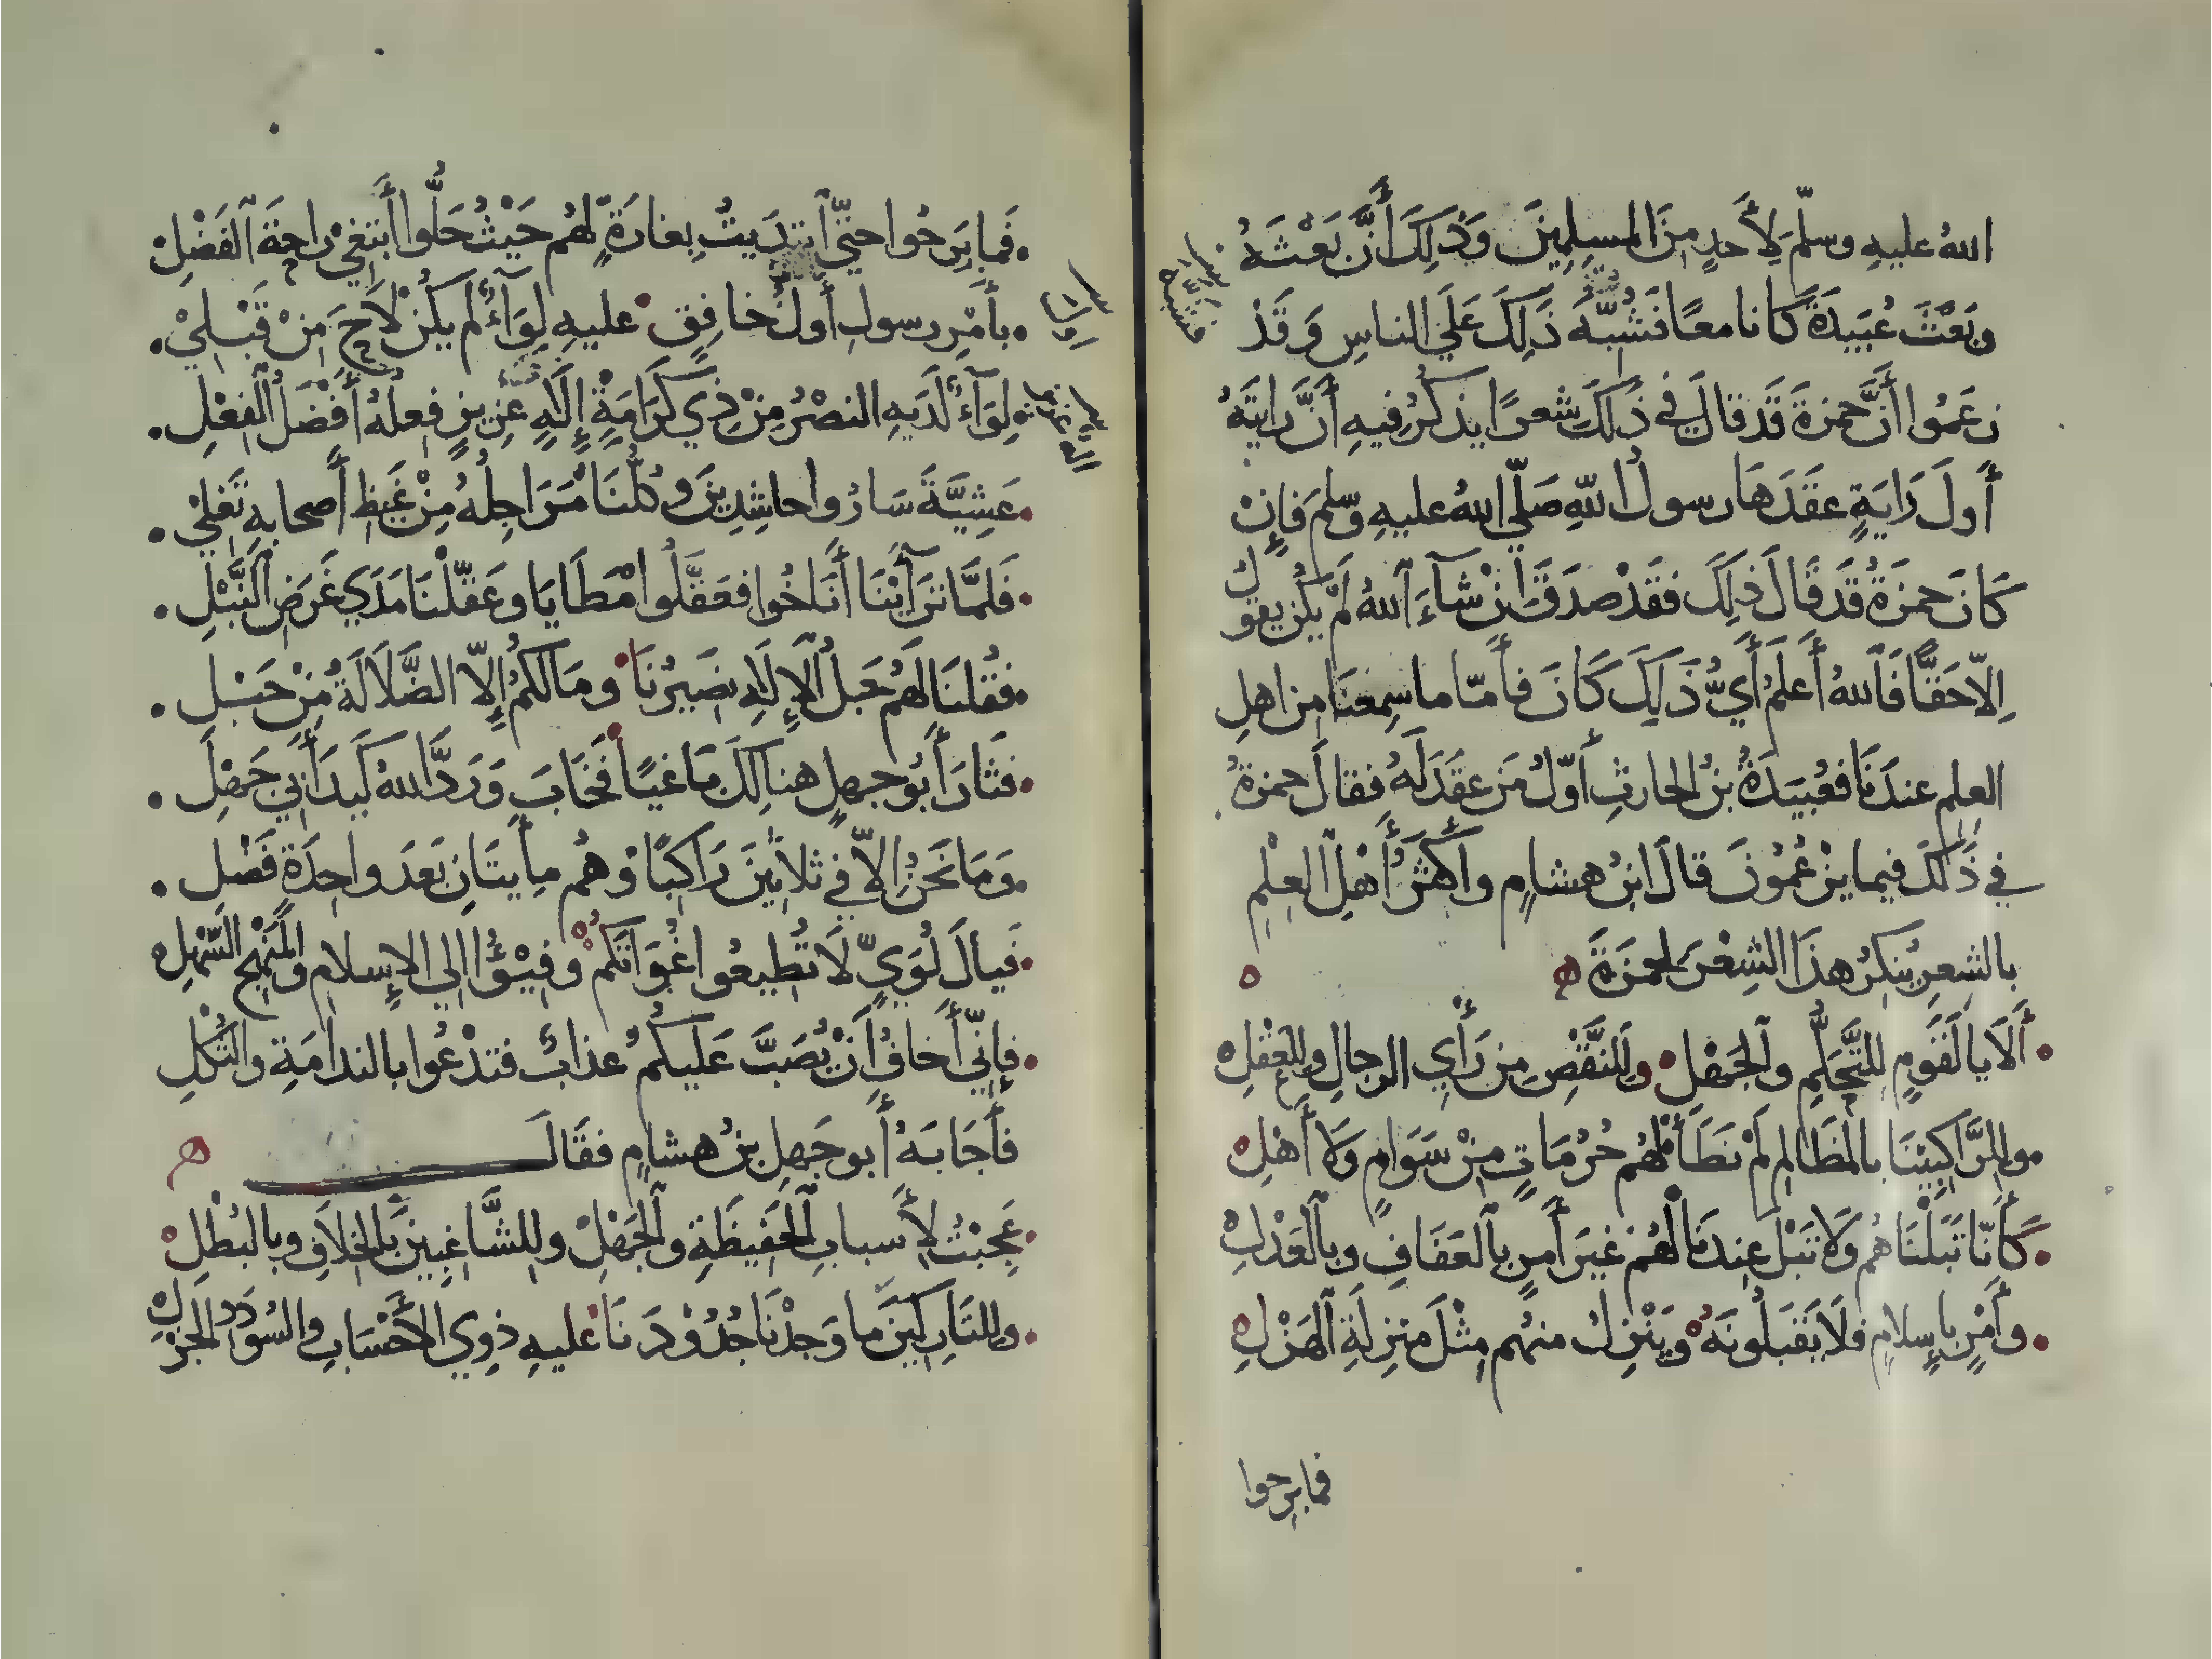 اللهُ عليهِ وسلّمَ لِأَحدٍ مِنَ المسلِمِينَ وَذَلِكَ أَنَّ بَعْثَهُ
وبَعْثَ عُبَيدَةَ كانا معًا فَشُبِّهَ ذَلِكَ عَلَى الناسِ وَقَدْ
زعَمُوا أَنَّ حمزةَ قَد قالَ في ذَلكَ شعرًا يذكُرُ فيهِ أَنَّ رايَتَهُ
أَولَ رَايَةٍ عقَدَها رسولُ اللهِ صَلّى اللهُ عليهِ وسلمَ فإِنْ
كَانَ حمزةُ قَد قَالَ ذلِكَ فقَدْ صدَقَ إِنْ شآءَ اللهُ لَمْ يكُن يقولُ
إِلاّ حَقًّا فَاللهُ أَعلَمُ أَيُّ ذَلِكَ كَانَ فأَمّا ما سمِعنَا مِن اهلِ
العِلمِ عندَنَا فعُبَيدَةُ بنُ الحارثِ أَوّلُ مَن عقَدَ لَهُ فقالَ حمزةُ
في ذَلكَ فيما يزْعُمُونَ قالَ ابنُ هشامٍ وأَكثَرُ أَهْلِ العِلْمِ
بالشعرِ يُنكرُ هذَا الشِعْرَ لحمزَةَ
أَلَا يا لَقَومٍ للتَّحَلُّمِ والجَهْلِ وللنَّقْصِ مِن رَأْيِ الرجالِ وللعَقْلِ
وللرَّاكِبِيْنَا بالمَظَالمِ لَمْ نَطَأْ لَهُم حُرُمَاتٍ مِنْ سَوَامٍ وَلَا أَهْلِ
كَأَنّا تَبَلْنَاهُم وَلَا تَبْلَ عِندَنَا لَهُم غيرَ أَمرٍ بالعَفَافِ وبالعَدْلِ
وأَمْرٍ بإِسلامٍ فلَا يَقبَلُونَهُ ويَنْزِلُ منهُم مِثْلَ مَنزِلَةِ الهَزْلِ
فما برحوا
فَما بَرِحُوا حتىّ ابتدَيتُ بِغارَةٍ لَهُم حَيْثُ حَلُّوا أَبتَغِيْ راحَةَ الفَضْلِ
بأَمْرِ رسولِ أَولُ خافِقٍ عليهِ لِوَآءٌ لَم يكُنْ لَاحَ مِنْ قَبْلِيْ
لِوَآءٌ لَدَيهِ النصْرُ مِنْ ذِي كَرَامَةٍ إِلَهٍ عزِيزٍ فِعلُهُ أَفْضَلُ الفِعْلِ
عَشِيَّةَ سَارُوا حاشِدِينَ وكُلُّنَا مَرَاجِلُهُ مِنْ غَيظِ أَصحابهِ تَغلِيْ
فَلمَّا تَرَآئَيْنَا أَنَاخُوا فعَقَّلُوا مَطَايَا وعَقّلْنَا مَدَي غَرَضِ النَّبْلِ
فقُلنَا لَهُم حَبلُ الإِلَهِ نصَيِرُنَا ومَا لَكُمُ إِلاّ الضَّلَالَةُ مِنْ حَبْلِ
فثَارَ أَبُو جهلٍ هنالِكَ مَاغيًا فَخَابَ وَرَدَّ اللهُ كَيدَ أَبي جَهْلِ
وَمَا نَحَنُ إِلاّ في ثلاثِينَ رَاكِبًا وَهُم مِأَيتَانِ بَعدَ واحِدَةٍ فَضْلِ
فيالَ لُوَيٍّ لَا تُطِيعُوا غُوَاتَكُم وَفِيْؤُا إلى الإِسلامِ والمَنهَجِ السَّهْلِ
فإِنّي أَخافُ أَنْ يُصَبَّ عَليكمُ عذابٌ فتدْعُوا بالندامَةِ والثُكْلِ
فأَجَابَهُ أَبو جَهلِ بنُ هشامٍ فقَالَ
عَجِبْتُ لأَسبابِ الحَفِيظَةِ والجَهْلِ وللشَّاغبِينَ بالخلاَفِ وبالبُطْلِ
وللتارِكينَ ما وَجدْنَا جُدُوْدَنَا عليهِ ذوِي الأَحْسَابِ والسُودَدِ الجزْلِ